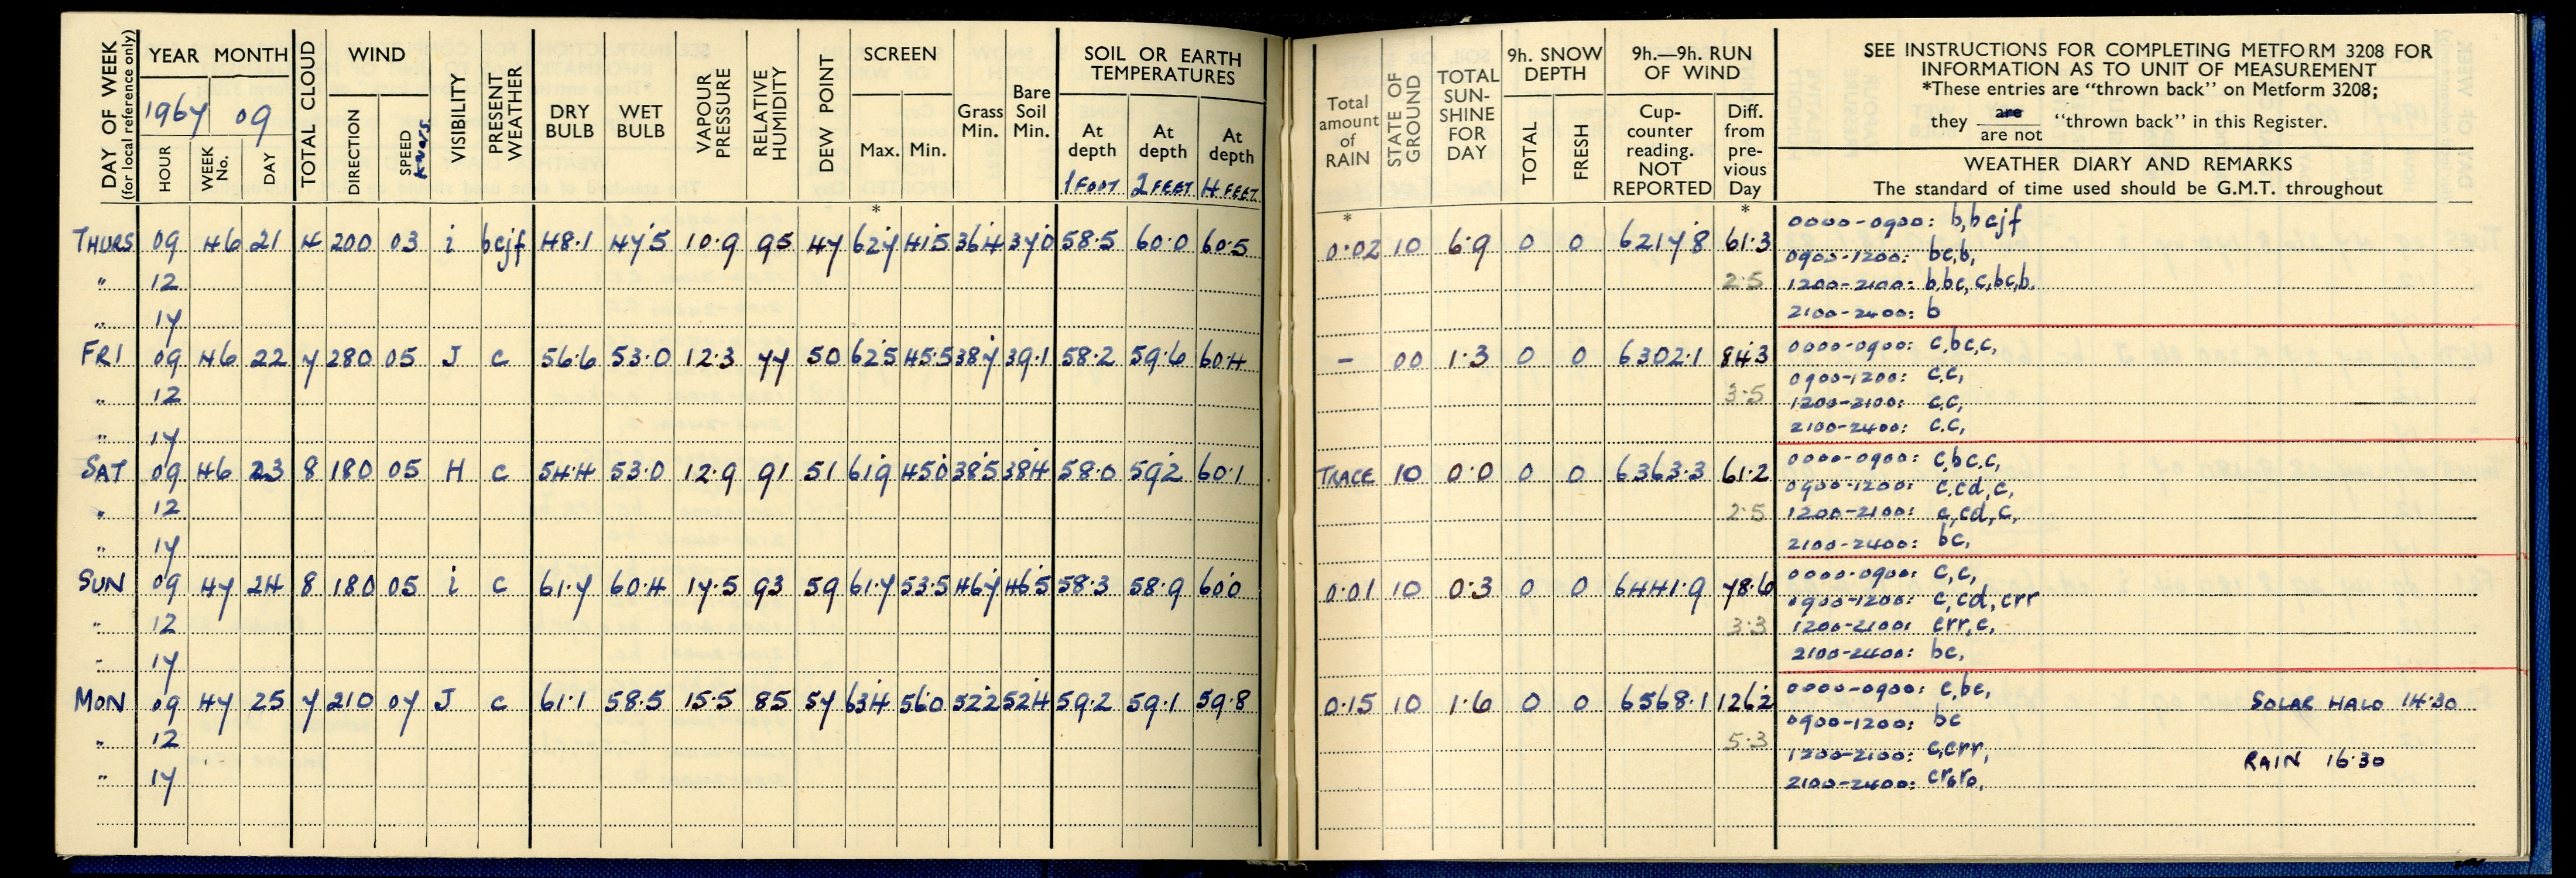 DAY OF WEEK
(for local reference only)
YEAR MONTH
1967 09
HOUR
WEEK No.
DAY
TOTAL CLOUD
WIND
DIRECTION
SPEED
KNOTS
VISIBILITY
PRESENT WEATHER
DRY BULB
WET BULB
VAPOUR PRESSURE
RELATIVE HUMIDITY
DEW POINT
SCREEN
Max. Min.
*
Grass Min.
Bare Soil Min.
SOIL OR EARTH TEMPERATURES
At depth 1 FOOT
At depth 2 FEET
At depth 4 FEET
THURS 09 46 21 4 200 03 i bcjf 48.1 47.5 10.9 95 47 62.7 41.5 36.4 37.0 58.5 60.0 60.5
" 12
" 17
FRI 09 46 22 7 280 05 J c 56.6 53.0 12.3 77 50 62.5 45.5 38.7 39.1 58.2 59.6 60.4
" 12
" 17
SAT 09 46 23 8 180 05 H c 54.4 53.0 12.9 91 51 61.9 45.0 38.5 38.4 58.0 59.2 60.1
" 12
" 17
SUN 09 47 24 8 180 05 i c 61.7 60.4 17.5 93 59 61.7 53.5 46.7 46.5 58.3 58.9 60.0
" 12
" 17
MON 09 47 25 7 210 07 J c 61.1 58.5 15.5 85 57 63.4 56.0 52.2 52.4 59.2 59.1 59.8
" 12
" 17
Total amount of RAIN
*
STATE OF GROUND
TOTAL SUN-SHINE FOR DAY
9h. SNOW DEPTH
TOTAL
FRESH
9h.—9h. RUN OF WIND
Cup-counter reading. NOT REPORTED
Diff. from pre-vious Day
*
SEE INSTRUCTIONS FOR COMPLETING METFORM 3208 FOR
INFORMATION AS TO UNIT OF MEASUREMENT
*These entries are "thrown back" on Metform 3208;
they are / are not "thrown back" in this Register.
WEATHER DIARY AND REMARKS
The standard of time used should be G.M.T. throughout
0000-0900: b,bcjf
0.02 10 6.9 0 0 6217.8 61.3
0900-1200: bc,b,
2.5 1200-2100: b,bc, c,bc,b.
2100-2400: b
0000-0900: c,bc,c,
— 00 1.3 0 0 6302.1 84.3
0900-1200: c,c,
3.5 1200-2100: c,c,
2100-2400: c,c,
0000-0900: c,bc,c,
TRACE 10 0.0 0 0 6363.3 61.2
0900-1200: c,cd,c,
2.5 1200-2100: c,cd,c,
2100-2400: bc,
0000-0900: c,c,
0.01 10 0.3 0 0 6441.9 78.6
0900-1200: c,cd,crr
3.3 1200-2100: crr,c,
2100-2400: bc,
0000-0900: c,bc, SOLAR HALO 14.30
0.15 10 1.6 0 0 6568.1 126.2
0900-1200: bc
5.3 1200-2100: c,crr, RAIN 16.30
2100-2400: cr₀r₀,